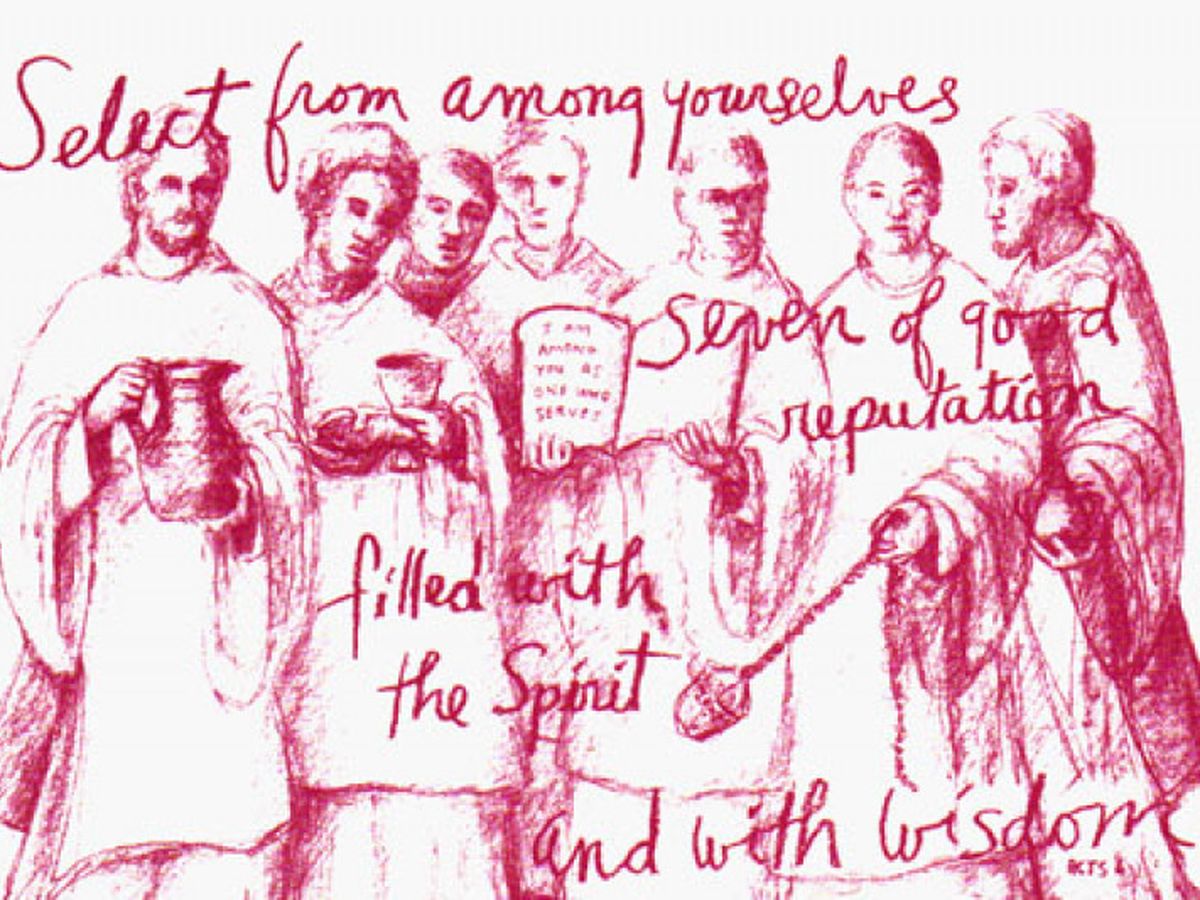 Select from among yourselves
seven of good
reputation
I AM
AMONG
YOU AS
ONE WHO
SERVES
filled with
the Spirit
and with wisdom
ACTS 6